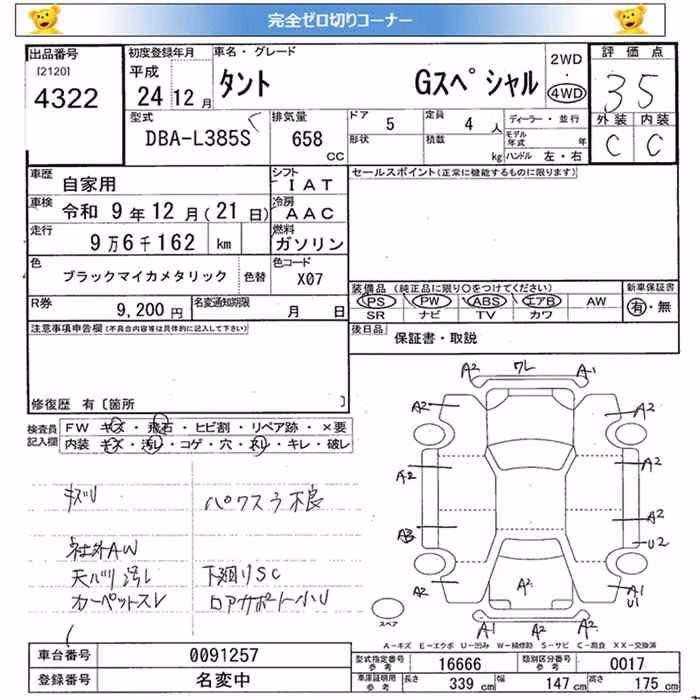 完全ゼロ切りコーナー
出品番号
[2120]
4322
初度登録年月
平成
24 12 月
車名・グレード
タント Gスペシャル
2WD
・
4WD
評価点
35
外装 内装
C C
型式
DBA-L385S
排気量
658
CC
ドア 5
形状
定員 4 人
積載 kg
ディーラー・並行
モデル年式 年
ハンドル 左・右
車歴 自家用
シフト IAT
車検 令和 9 年 12 月 (21 日)
冷房 AAC
走行 9万6千162 km
燃料 ガソリン
色 ブラックマイカメタリック 色替
色コード X07
R券 9,200 円
名変通知期限 月 日
セールスポイント(正常に機能するものに限ります)
装備品 (純正品に限り○をつけてください)
PS PW ABS エアB AW
SR ナビ TV カワ
新車保証書
有・無
後日品 保証書・取説
注意事項申告欄(不具合内容等は具体的に記入して下さい)
修復歴 有〔箇所 〕
検査員記入欄
FW キズ・飛石・ヒビ割・リペア跡・×要
内装 キズ・汚レ・コゲ・穴・スレ・キレ・破レ
キズU
パワスラ不良
社外AW
天バリ汚レ
カーペットスレ
下廻りSC
ロアサポート小U
A2 ワレ A1
A2 A2
A2 A2
A3 A2
U2
A2 A2 A1
U1
A1 A2 A2
スペア
A-キズ E-エクボ U-凹み W-補修跡 S-サビ C-腐食 XX-交換済
車台番号 0091257
登録番号 名変中
型式指定番号 参考 16666
類別区分番号 参考 0017
車庫証明用 参考 長さ 339 cm 幅 147 cm 高さ 175 cm